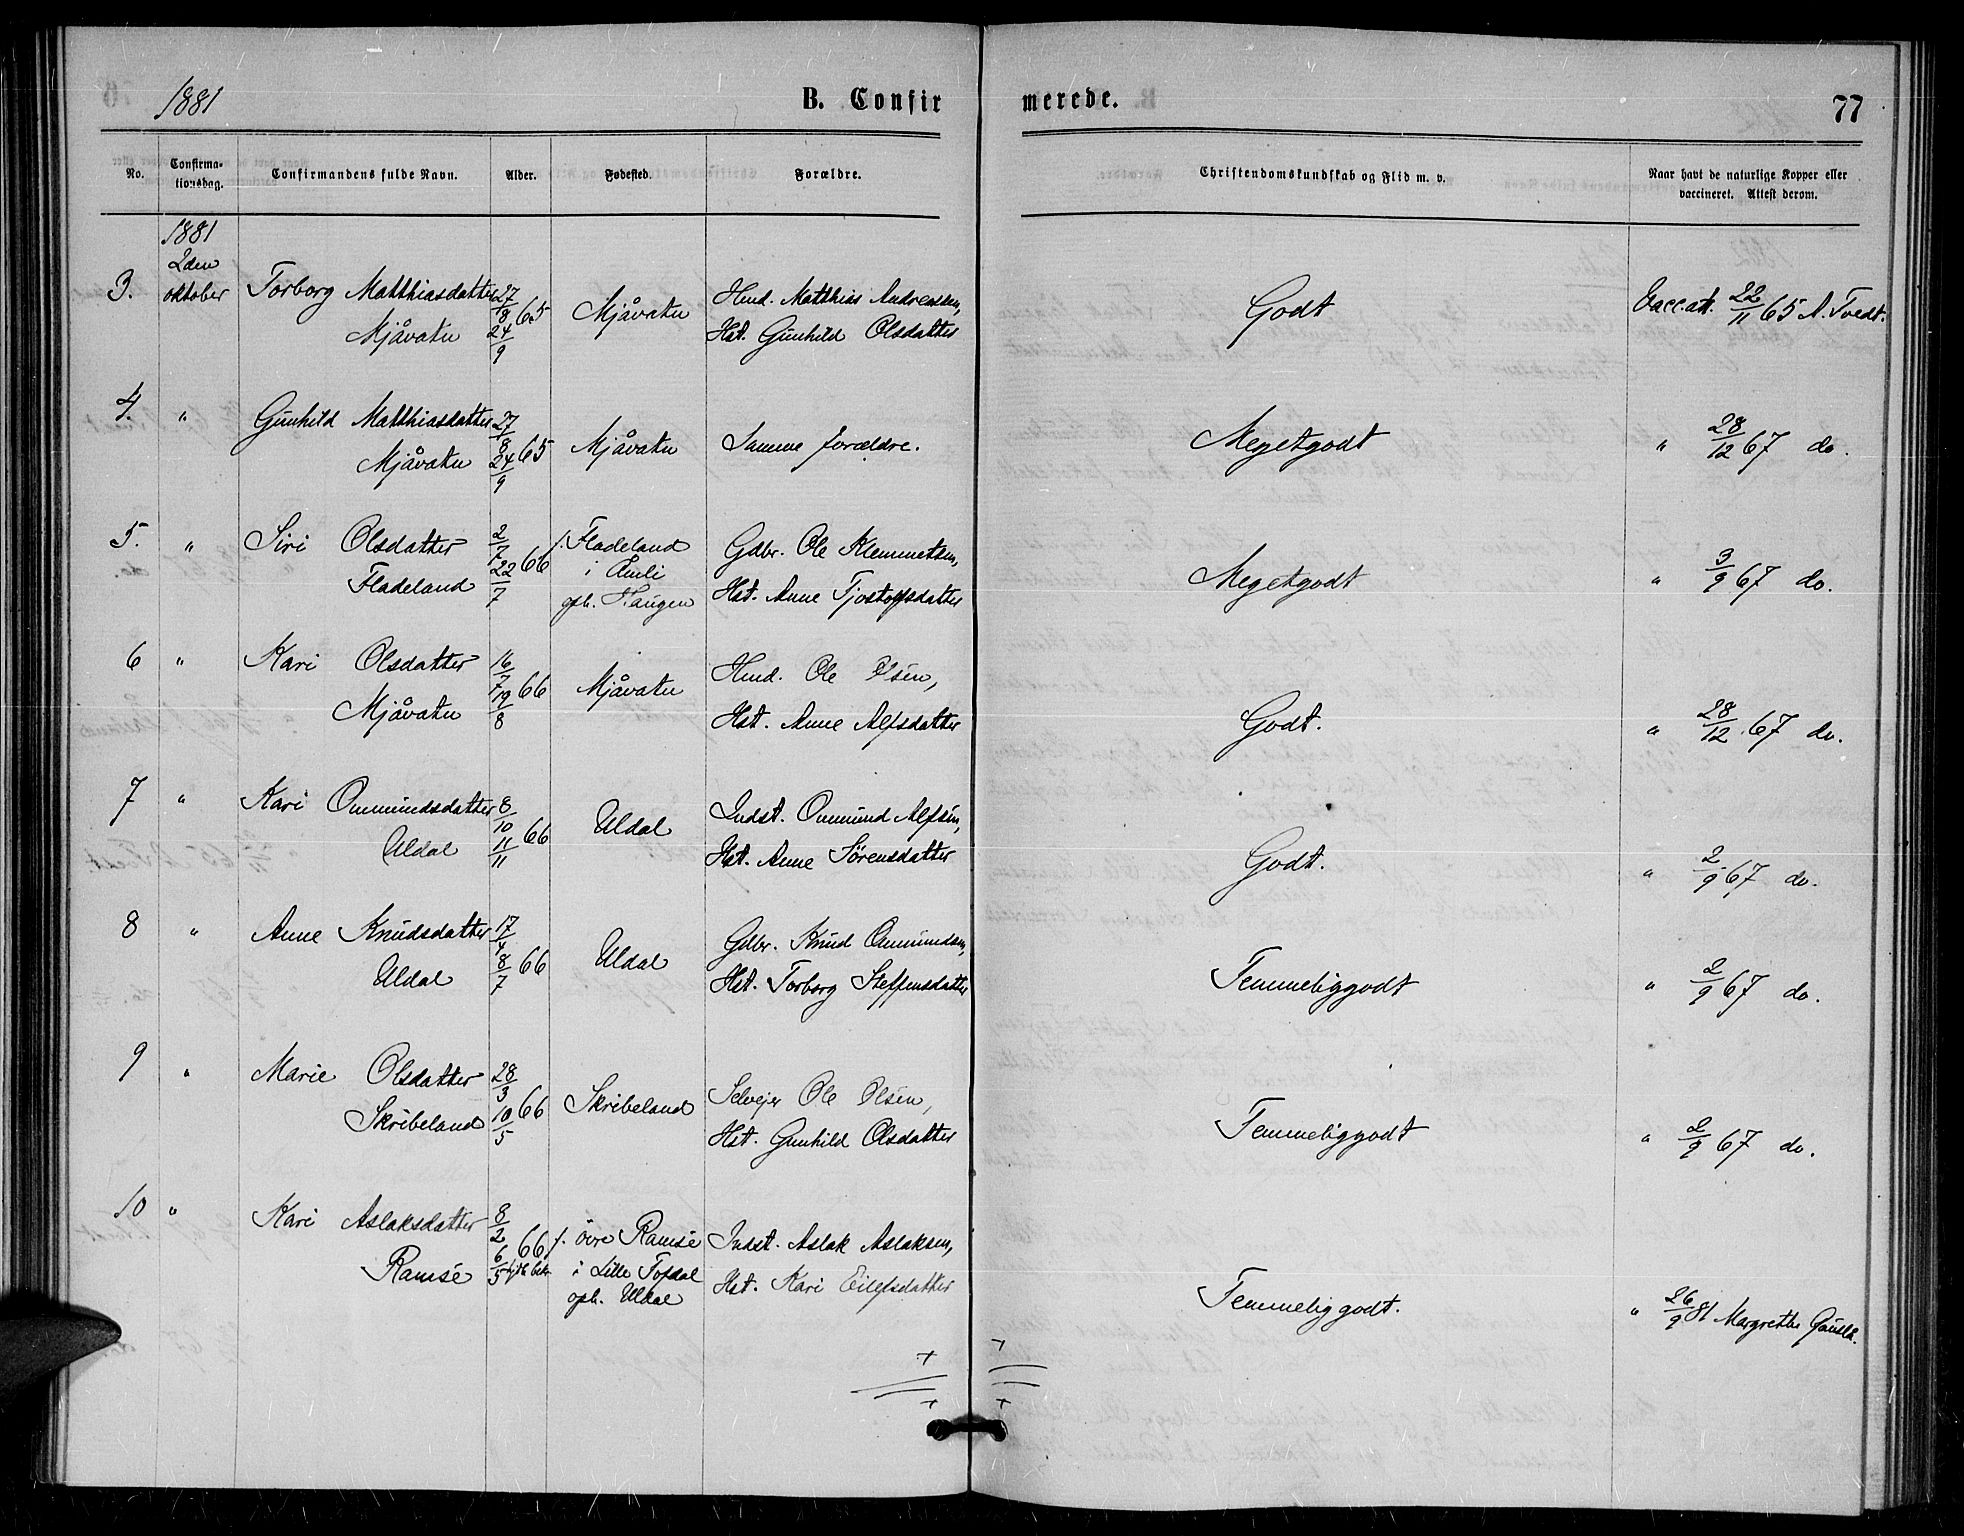 1881 B. Confirmerede. 77
No. Confirmationsdag. Confirmandens fulde Navn. Alder. Fødested. Forældre. Christendomskundskab og Flid m. v. Naar havt de naturlige Kopper eller vaccineret. Attest derom.
1881
2den
3. oktober Torborg Matthiasdatter 27/8 65 Mjåvatn Hmd. Matthias Andreassen, Godt Vacc. att. 22/11 65 A. Tvedt.
Mjåvatn 24/9 Hst. Gunhild Olsdatter
4. " Gunhild Matthiasdatter 27/8 65 Mjåvatn Samme forældre. Megetgodt " 28/12 67 do.
Mjåvatn 24/9
5. " Siri Olsdatter 2/7 66 f. Fladeland Gdbr. Ole Klemmetsen, Megetgodt " 3/9 67 do.
Fladeland 22/7 i Åmli Hst. Anne Tjostolfsdatter
oph. Haugen
6 " Kari Olsdatter 16/7 66 Mjåvatn Hmd. Ole Olsen, Godt. " 28/12 67 do.
Mjåvatn 19/8 Hst. Anne Alfsdatter
7 " Kari Ommundsdatter 8/10 66 Uldal Indst. Ommund Alfsen, Godt. " 2/9 67 do.
Uldal 11/11 Hst. Anne Sørensdatter
8 " Anne Knudsdatter 17/4 66 Uldal Gdbr. Knud Ommundsen, Temmeliggodt " 2/9 67 do.
Uldal 8/7 Hst. Torborg Steffensdatter
9 " Marie Olsdatter 28/3 66 Skribeland Selvejer Ole Olsen, Temmeliggodt " 2/9 67 do.
Skribeland 10/5 Hst. Gunhild Olsdatter
10 " Kari Aslaksdatter 8/2 66 f. övre Ramse Indst. Aslak Aslaksen, Temmeliggodt. " 26/9 81 Margrethe
Ramse 6/5 i Lille Tofdal Hst. Kari Eilefsdatter
oph. Uldal